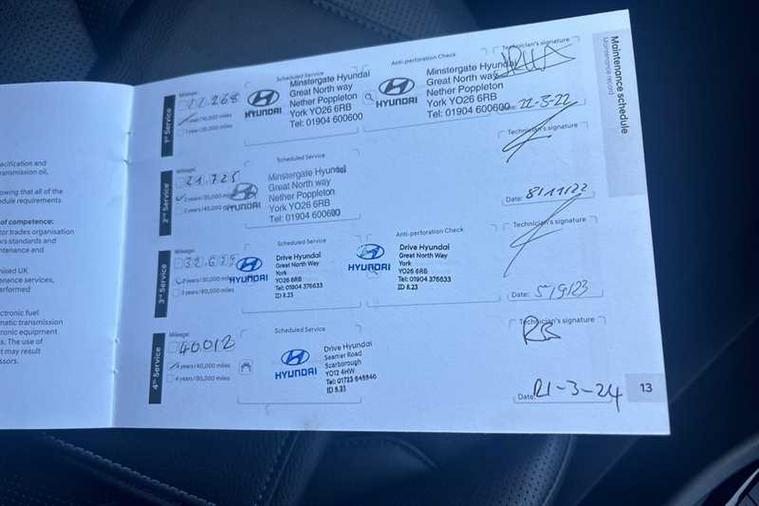 ecification and
ransmission oil,
owing that all of the
dule requirements
of competence:
tor trades organisation
rs standards and
ntenance and
nised UK
enance services,
erformed
ctronic fuel
matic transmission
ronic equipment
s. The use of
t may result
ssors.
Maintenance schedule
Maintenance record
1st Service
Mileage:
12,268
1 year/10,000 miles
1 year/20,000 miles
Scheduled Service
HYUNDAI
Minstergate Hyundai
Great North way
Nether Poppleton
York YO26 6RB
Tel: 01904 600600
Anti-perforation Check
HYUNDAI
Minstergate Hyundai
Great North way
Nether Poppleton
York YO26 6RB
Tel: 01904 600600
Technician's signature
22-3-22
2nd Service
Mileage:
21,725
2 years/20,000 miles
2 years/40,000 miles
Scheduled Service
HYUNDAI
Minstergate Hyundai
Great North way
Nether Poppleton
York YO26 6RB
Tel: 01904 600600
Technician's signature
Date: 8/11/22
3rd Service
Mileage:
3 years/30,000 miles
3 years/60,000 miles
Scheduled Service
HYUNDAI
Drive Hyundai
Great North Way
York
YO26 6RB
Tel: 01904 376633
ID 8.23
Anti-perforation Check
HYUNDAI
Drive Hyundai
Great North Way
York
YO26 6RB
Tel: 01904 376633
ID 8.23
Technician's signature
Date: 5/9/23
4th Service
Mileage:
40,012
4 years/40,000 miles
4 years/80,000 miles
Scheduled Service
HYUNDAI
Drive Hyundai
Seamer Road
Scarborough
YO12 4HW
ID 8.23
Technician's signature
Date: 21-3-24
13